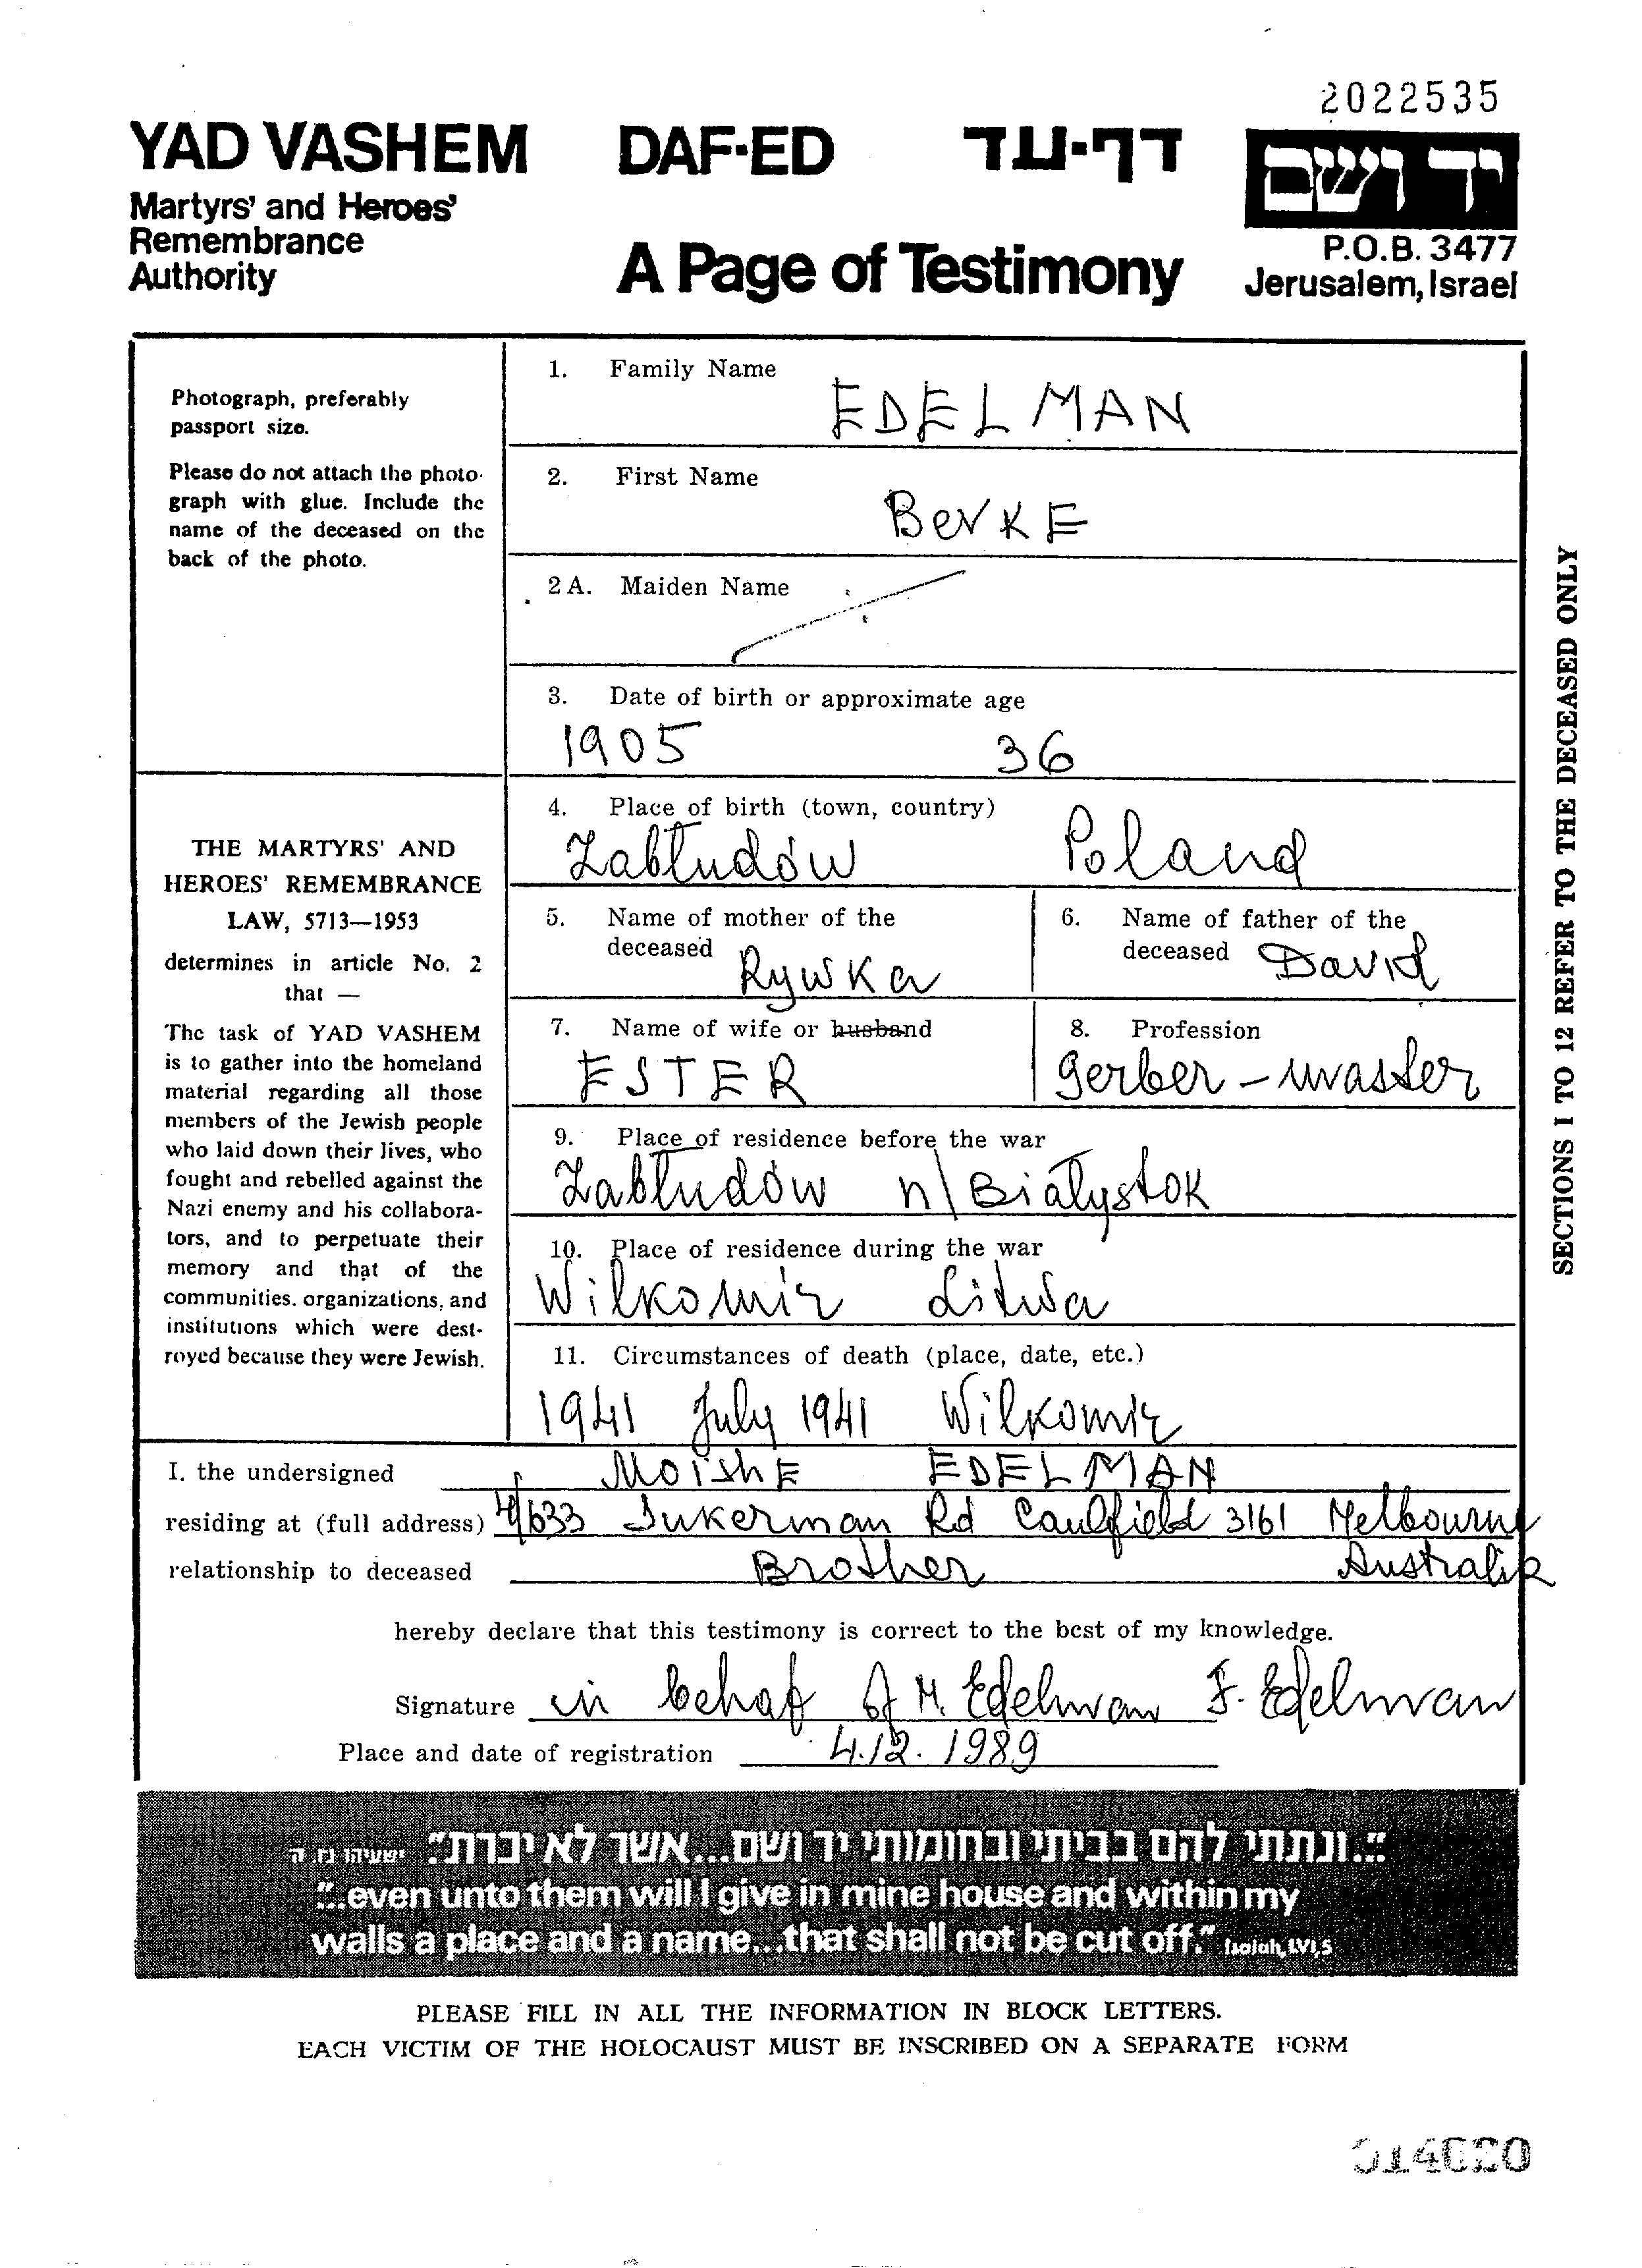 2022535
YAD VASHEM DAF-ED דף-עד יד ושם
Martyrs' and Heroes'
Remembrance
Authority
A Page of Testimony
P.O.B. 3477
Jerusalem, Israel
Photograph, preferably
passport size.
Please do not attach the photo-
graph with glue. Include the
name of the deceased on the
back of the photo.
THE MARTYRS' AND
HEROES' REMEMBRANCE
LAW, 5713—1953
determines in article No. 2
that —
The task of YAD VASHEM
is to gather into the homeland
material regarding all those
members of the Jewish people
who laid down their lives, who
fought and rebelled against the
Nazi enemy and his collabora-
tors, and to perpetuate their
memory and that of the
communities, organizations, and
institutions which were dest-
royed because they were Jewish.
1. Family Name
EDELMAN
2. First Name
BerKE
2 A. Maiden Name
3. Date of birth or approximate age
1905 36
4. Place of birth (town, country)
Zabłudów Poland
5. Name of mother of the
deceased Rywka
6. Name of father of the
deceased David
7. Name of wife or husband
ESTER
8. Profession
gerber - master
9. Place of residence before the war
Zabłudów n/Białystok
10. Place of residence during the war
Wilkomir Litwa
11. Circumstances of death (place, date, etc.)
1941 July 1941 Wilkomir
SECTIONS 1 TO 12 REFER TO THE DECEASED ONLY
I, the undersigned MoishE EDELMAN
residing at (full address) 4/633 Inkerman Rd Caulfield 3161 Melbourne
relationship to deceased Brother Australia
hereby declare that this testimony is correct to the best of my knowledge.
Signature in behaf of M. Edelman F. Edelman
Place and date of registration 4.12.1989
"...ונתתי להם בביתי ובחומותי יד ושם...אשר לא יכרת." ישעיהו נו ה
"...even unto them will I give in mine house and within my
walls a place and a name...that shall not be cut off." Isaiah, LVI,5
PLEASE FILL IN ALL THE INFORMATION IN BLOCK LETTERS.
EACH VICTIM OF THE HOLOCAUST MUST BE INSCRIBED ON A SEPARATE FORM